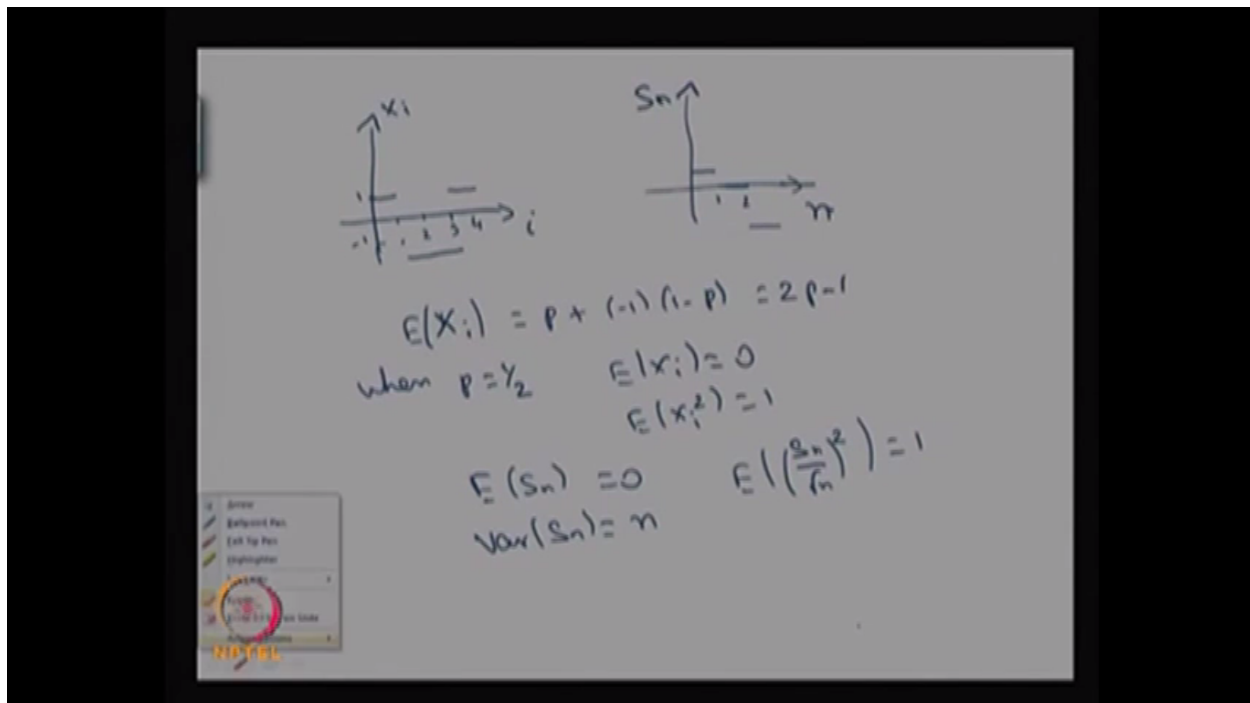 Xi
1
-1
1 2 3 4
i
Sn
1 2
n
E(Xi) = p + (-1)(1-p) = 2p-1
when p = 1/2 E(Xi) = 0
E(Xi²) = 1
E(Sn) = 0 E((Sn/√n)²) = 1
Var(Sn) = n
Arrow
Ballpoint Pen
Felt Tip Pen
Highlighter
NPTEL